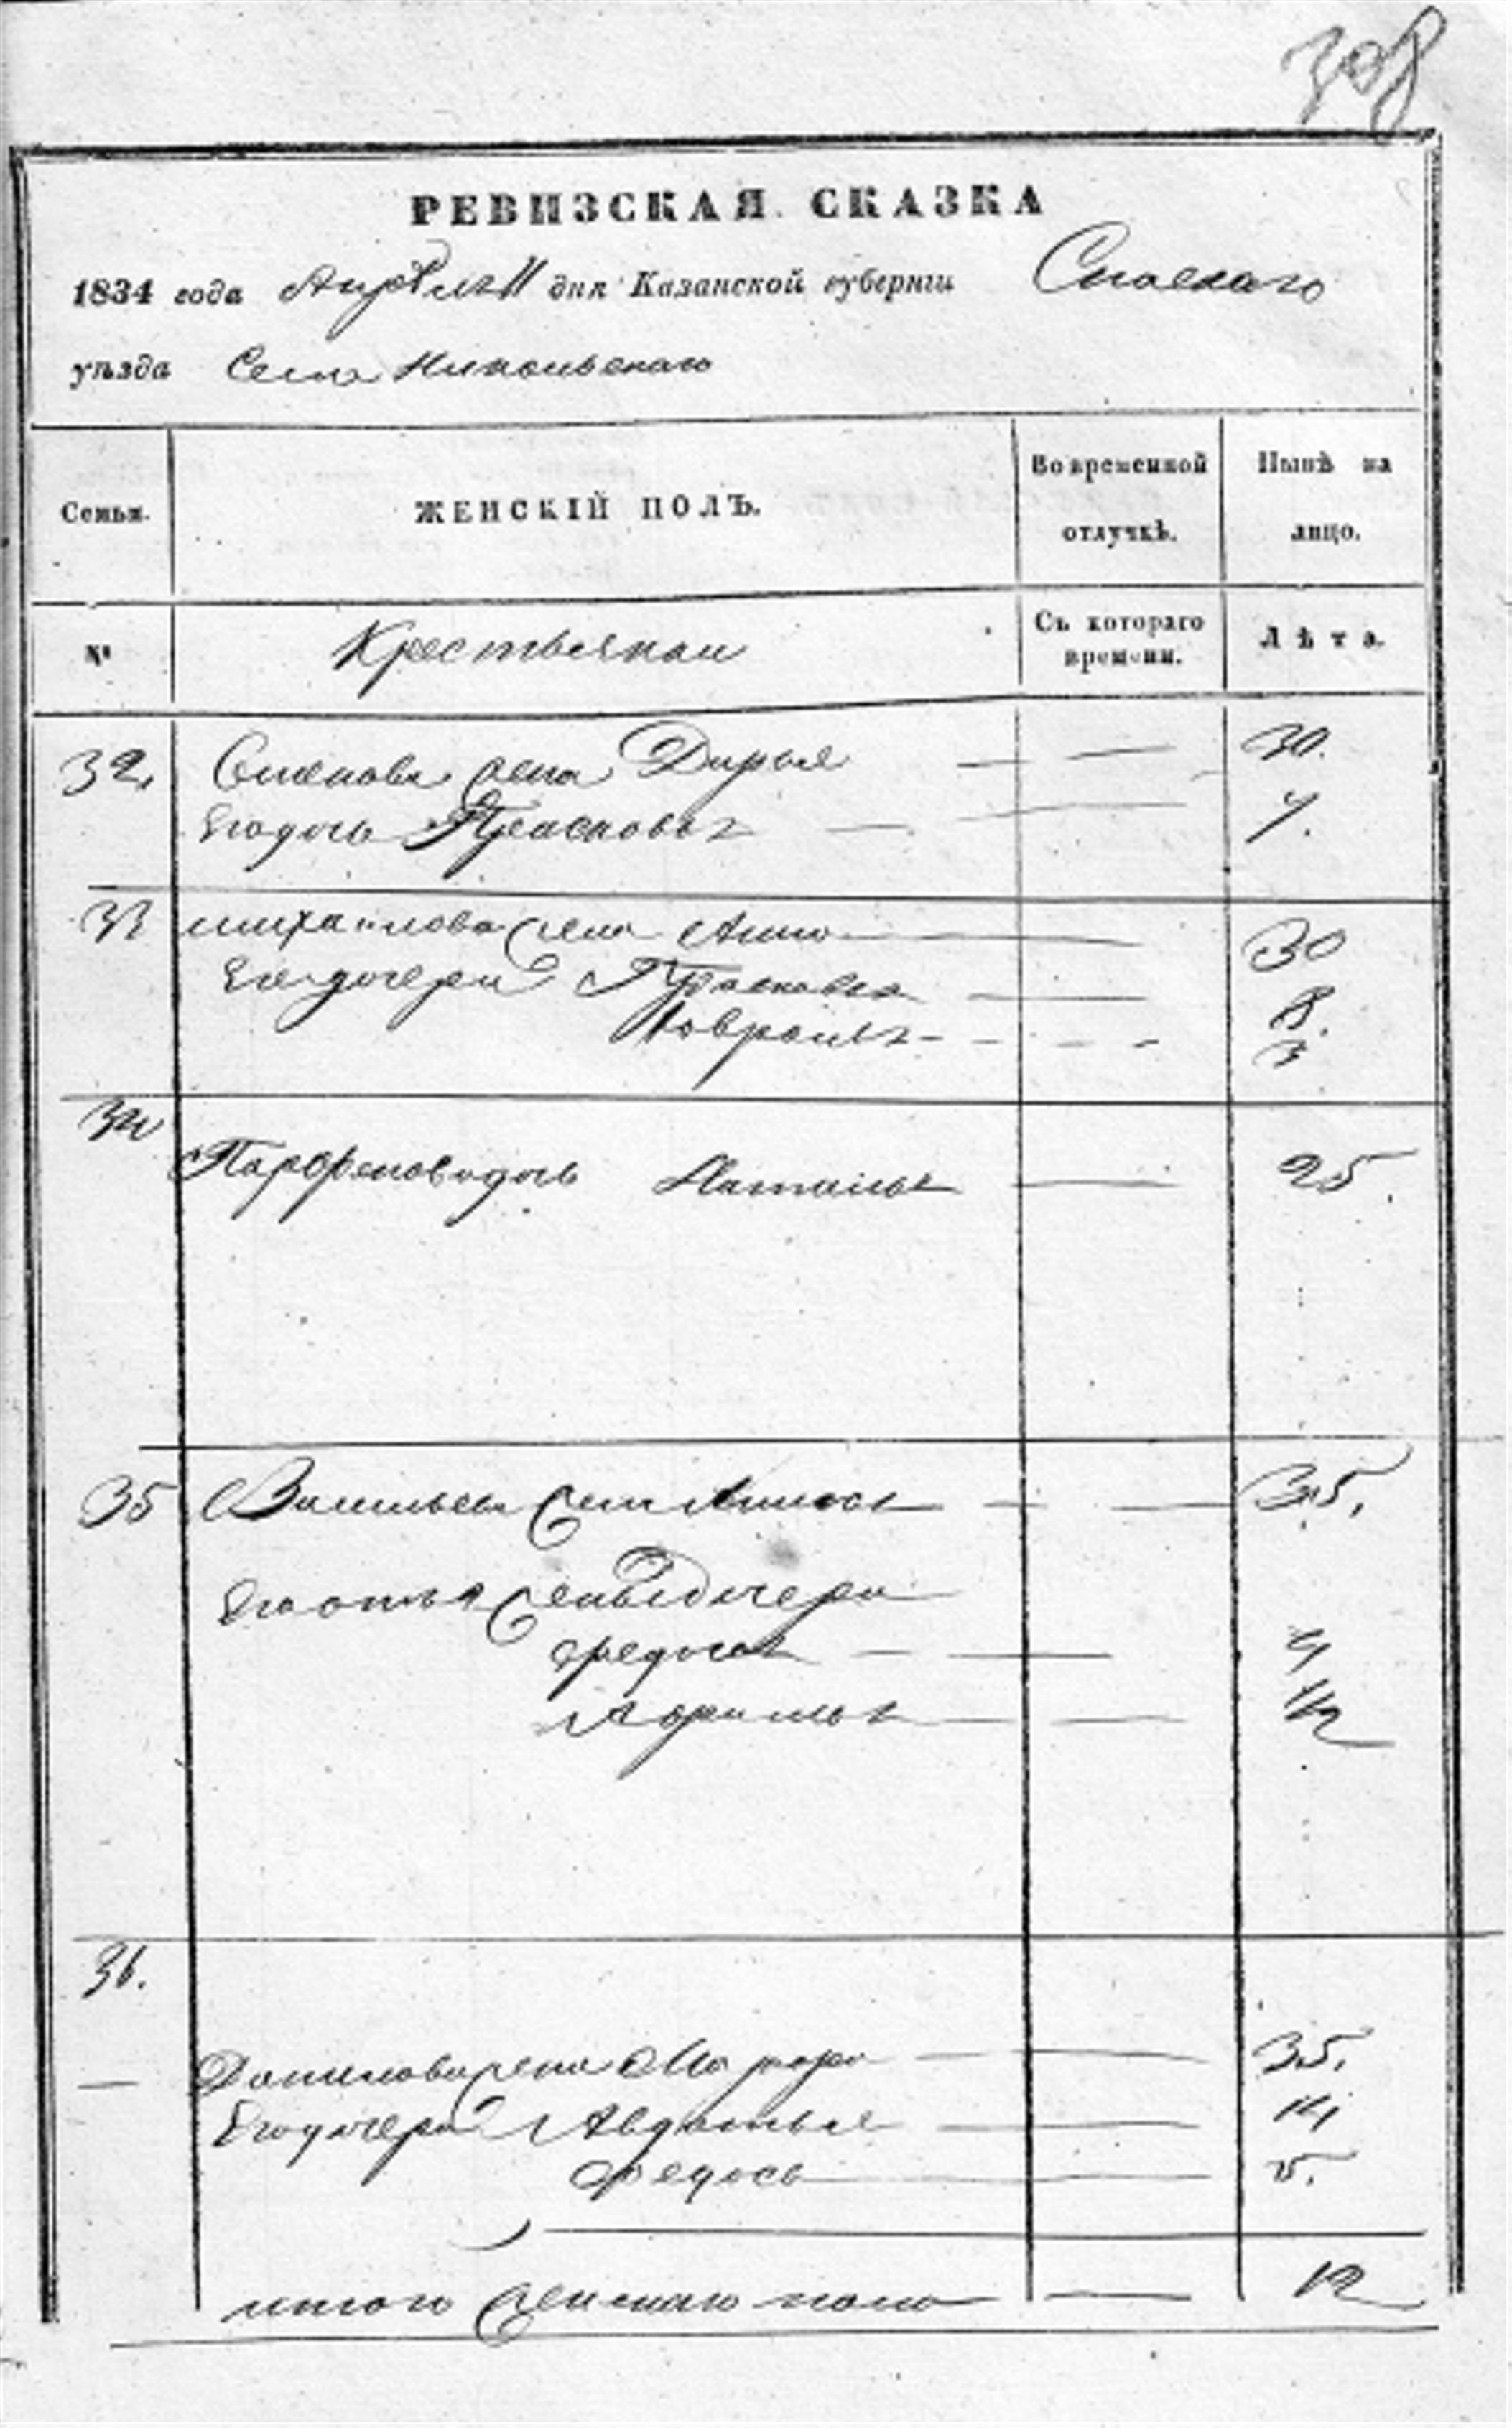 308
РЕВИЗСКАЯ СКАЗКА
1834 года Апреля 11 дня Казанской губерніи Спаскаго
уѣзда Села Никольскаго
Семьи. ЖЕНСКІЙ ПОЛЪ. Во временной отлучкѣ. Нынѣ на лицо.
№ Крестьянки Съ котораго времени. Лѣта.
32. Семенова жена Дарья — 30.
Его дочь Прасковья —
33 Михайлова жена Анна — 30
Его дочери Прасковья — 8.
— 3
34 Парфенова дочь Наталья — 25.
35 Васильева жена — 35.
жены дочери
Федосья —
— 12
36.
— Данилова жена Марфа — 35.
Его дочери Авдотья — 14
Федосья — 5.
итого женскаго пола — 12